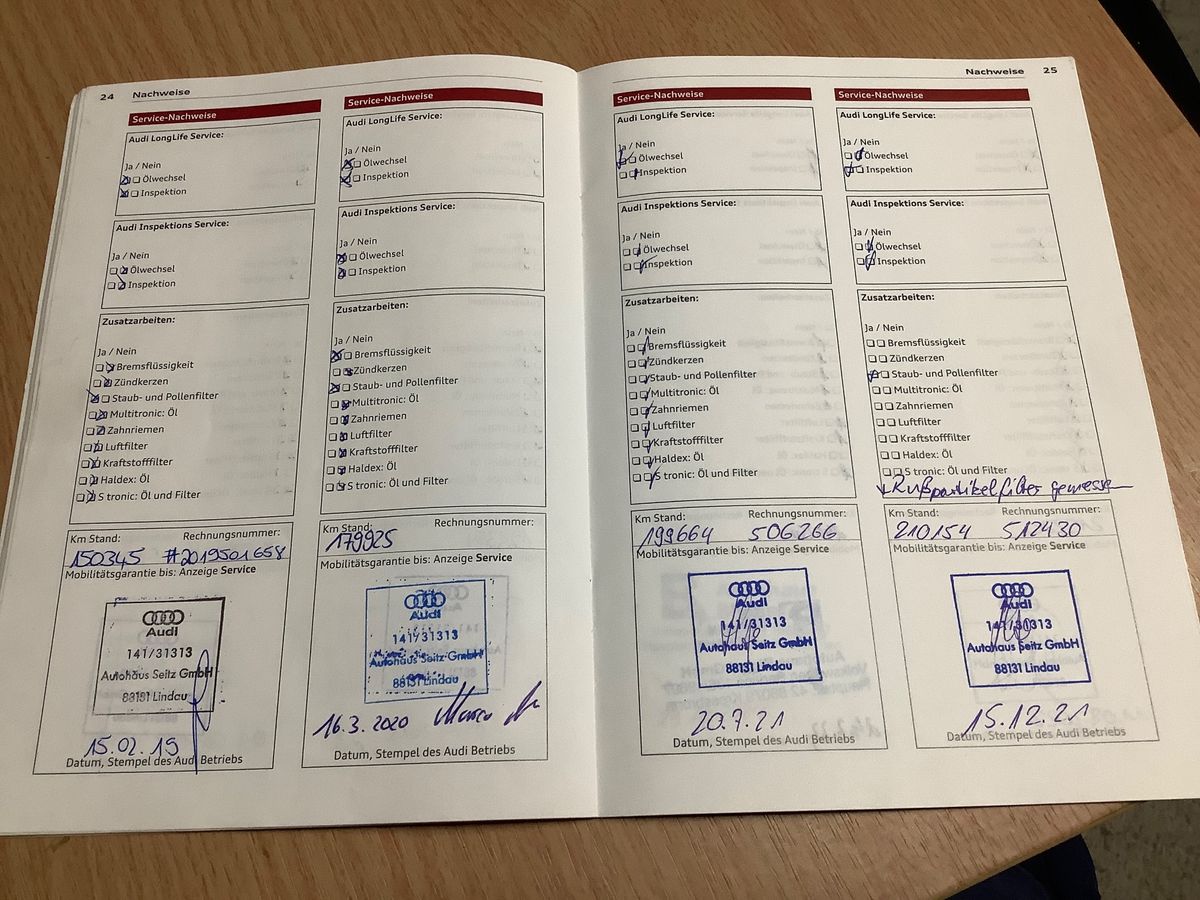 24 Nachweise
Service-Nachweise
Audi LongLife Service:
Ja / Nein
Ölwechsel
Inspektion
Audi Inspektions Service:
Ja / Nein
Ölwechsel
Inspektion
Zusatzarbeiten:
Ja / Nein
Bremsflüssigkeit
Zündkerzen
Staub- und Pollenfilter
Multitronic: Öl
Zahnriemen
Luftfilter
Kraftstofffilter
Haldex: Öl
S tronic: Öl und Filter
Km Stand: Rechnungsnummer:
150345 #2019501658
Mobilitätsgarantie bis: Anzeige Service
Audi
141/31313
Autohaus Seitz GmbH
88131 Lindau
15.02.19
Datum, Stempel des Audi Betriebs
Service-Nachweise
Audi LongLife Service:
Ja / Nein
Ölwechsel
Inspektion
Audi Inspektions Service:
Ja / Nein
Ölwechsel
Inspektion
Zusatzarbeiten:
Ja / Nein
Bremsflüssigkeit
Zündkerzen
Staub- und Pollenfilter
Multitronic: Öl
Zahnriemen
Luftfilter
Kraftstofffilter
Haldex: Öl
S tronic: Öl und Filter
Km Stand: Rechnungsnummer:
179925
Mobilitätsgarantie bis: Anzeige Service
Audi
141/31313
Autohaus Seitz GmbH
88131 Lindau
16.3.2020
Datum, Stempel des Audi Betriebs
Nachweise 25
Service-Nachweise
Audi LongLife Service:
Ja / Nein
Ölwechsel
Inspektion
Audi Inspektions Service:
Ja / Nein
Ölwechsel
Inspektion
Zusatzarbeiten:
Ja / Nein
Bremsflüssigkeit
Zündkerzen
Staub- und Pollenfilter
Multitronic: Öl
Zahnriemen
Luftfilter
Kraftstofffilter
Haldex: Öl
S tronic: Öl und Filter
Km Stand: Rechnungsnummer:
199664 506266
Mobilitätsgarantie bis: Anzeige Service
Audi
141/31313
Autohaus Seitz GmbH
88131 Lindau
20.7.21
Datum, Stempel des Audi Betriebs
Service-Nachweise
Audi LongLife Service:
Ja / Nein
Ölwechsel
Inspektion
Audi Inspektions Service:
Ja / Nein
Ölwechsel
Inspektion
Zusatzarbeiten:
Ja / Nein
Bremsflüssigkeit
Zündkerzen
Staub- und Pollenfilter
Multitronic: Öl
Zahnriemen
Luftfilter
Kraftstofffilter
Haldex: Öl
S tronic: Öl und Filter
Rußpartikelfilter gemessen
Km Stand: Rechnungsnummer:
210154 512430
Mobilitätsgarantie bis: Anzeige Service
Audi
141/31313
Autohaus Seitz GmbH
88131 Lindau
15.12.21
Datum, Stempel des Audi Betriebs